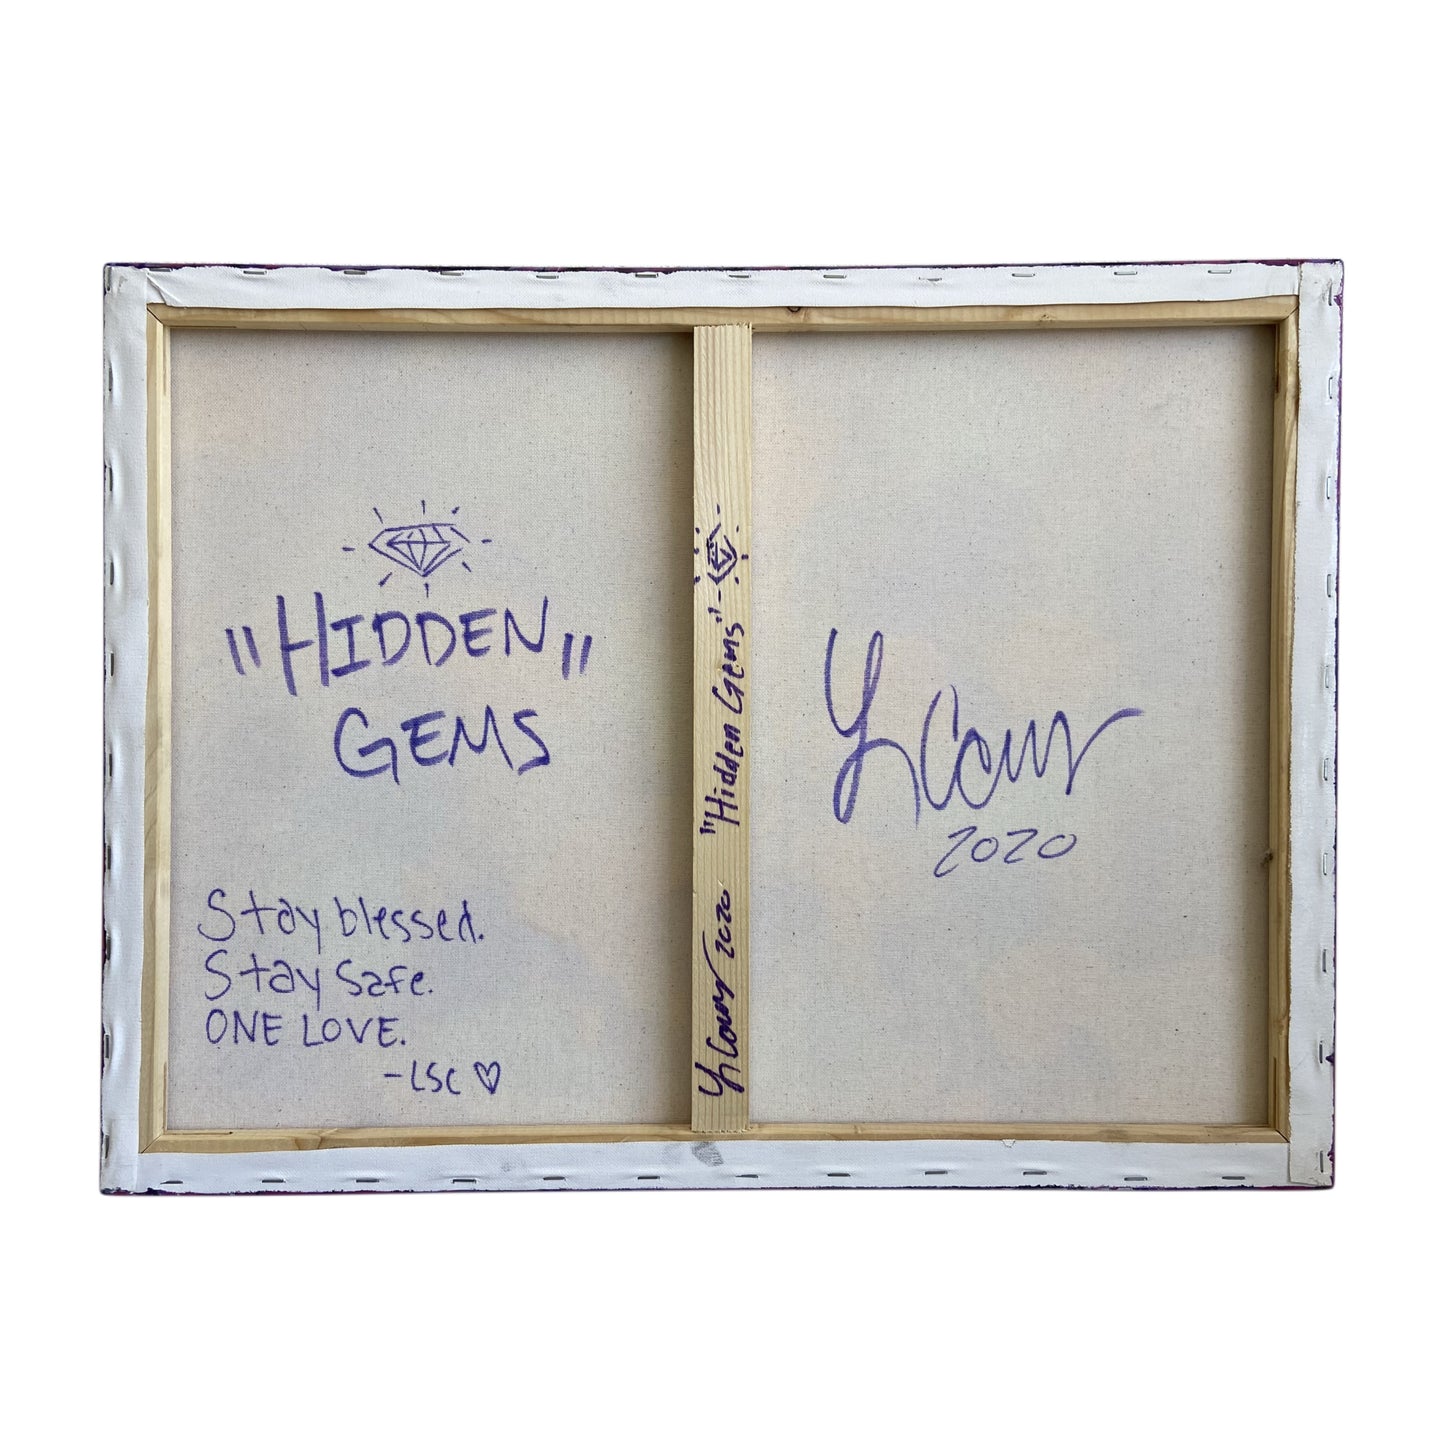 "HIDDEN"
GEMS
Stay blessed.
Stay safe.
ONE LOVE.
-LSC ♡
"Hidden Gems"
2020
2020